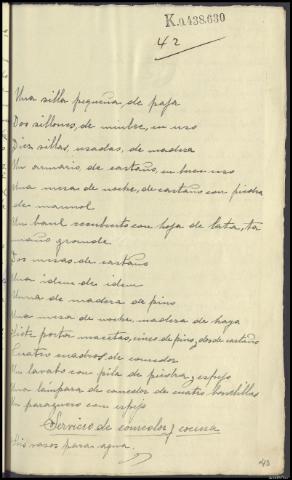 K.0.438.630
42
Una silla pequeña, de paja
Dos sillones, de mimbre, en uso
Diez sillas, usadas, de madera
Un armario, de castaño, en buen uso
Una mesa de noche, de castaño con piedra
de marmol
Un baul recubierto con hoja de lata, ta
maño grande
Dos mesas de castaño
Una idem de idem
Una de madera de pino
Una mesa de noche, madera de haya
Siete porta macetas, cinco de pino, y dos de castaño
Cuatro cuadros de comedor
Un lavabo con pila de piedra, y espejo
Una lámpara de comedor de cuatro bombillas
Un paraguero con espejo
Servicio de comedor y cocina
Seis vasos para agua.
43